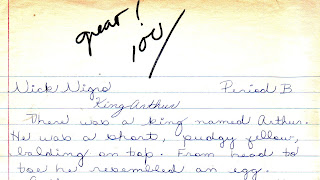 great!
100/
Nick Nigro Period B
King Arthur
There was a king named Arthur.
He was a short, pudgy fellow,
balding on top. From head to
toe he resembled an egg.